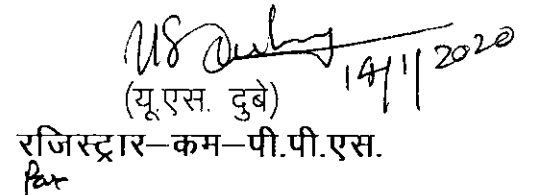 US Dubey 14/1/2020
(यू.एस. दुबे)
रजिस्ट्रार–कम–पी.पी.एस.